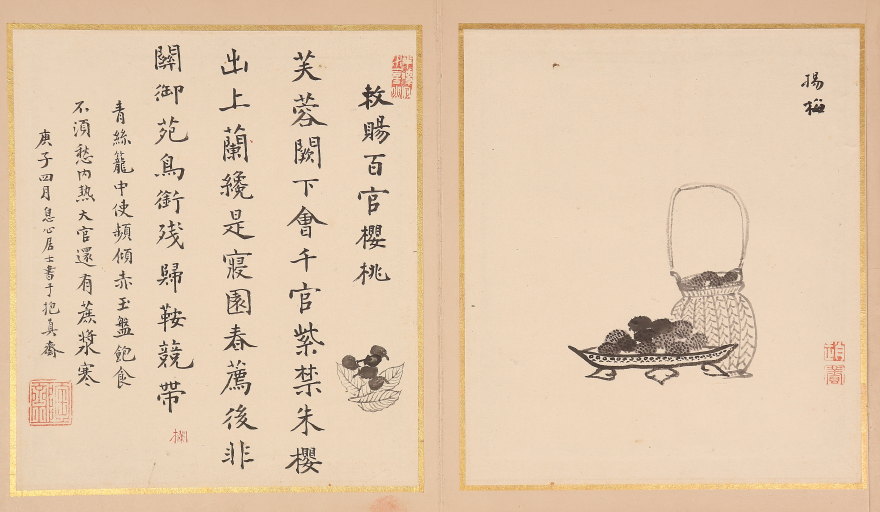 楊梅
敕賜百官櫻桃
芙蓉闕下會千官紫禁朱櫻
出上蘭纔是寢園春薦後非
關御苑鳥銜残歸鞍競帶
青絲籠中使頻傾赤玉盤飽食
不須愁内熱大官還有蔗漿寒
庚子四月息心居士書于抱真齋